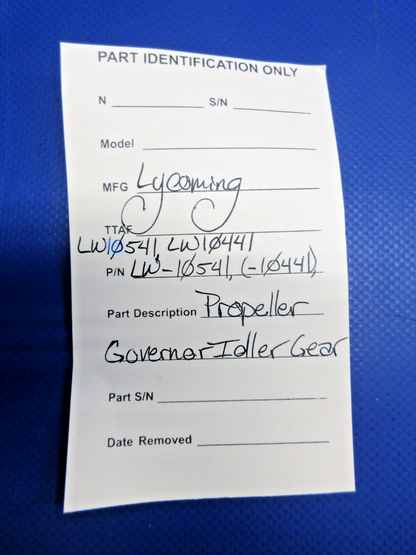 PART IDENTIFICATION ONLY
N ____________ S/N ____________
Model ____________
MFG Lycoming
TTAF
LW10541, LW10441
P/N LW-10541, (-10441)
Part Description Propeller
Governor Idler Gear
Part S/N ____________
Date Removed ____________